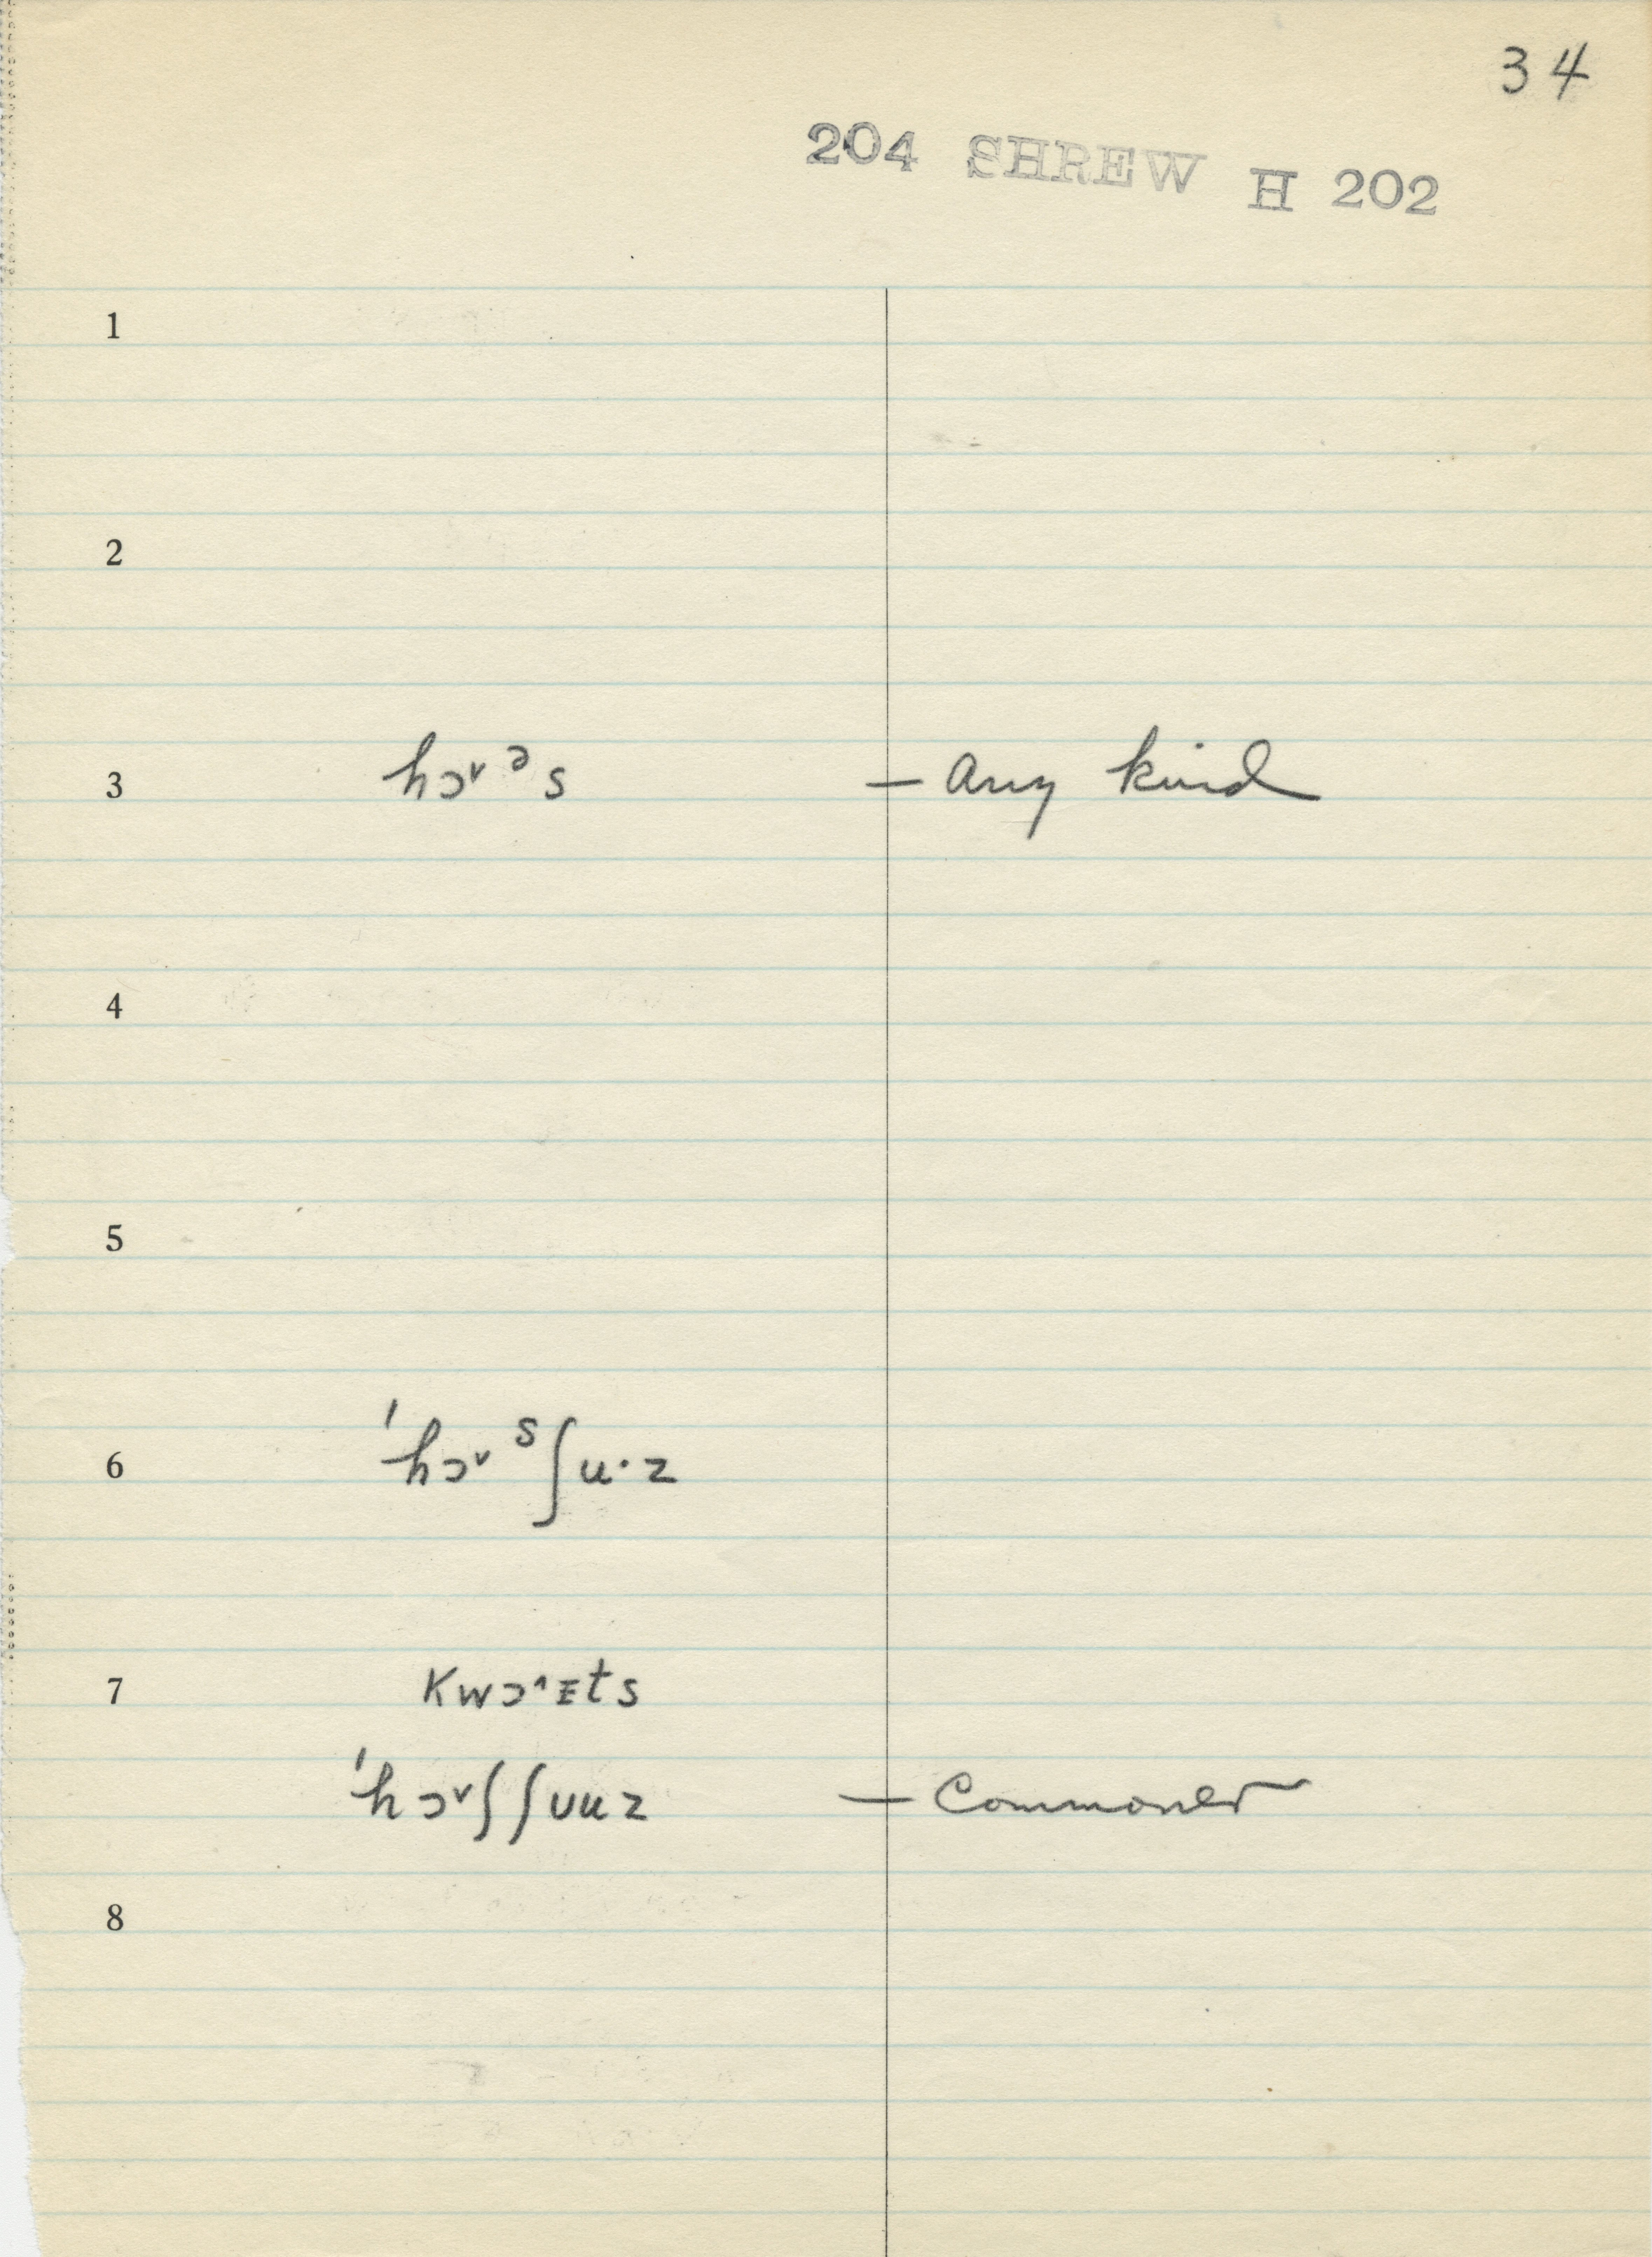 34
204 SHREW H 202
1
2
3 hɔ˅ᵊs — any kind
4
5
6 ˈhɔ˅ˢʃu·z
7 Kwɔ˄ᴇts
ˈhɔ˅ʃʃʊuz — Commoner
8